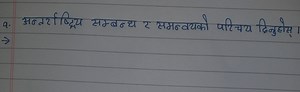 १. अन्तर्राष्ट्रिय सम्बन्ध र समन्वयको परिचय दिनुहोस् ।
→